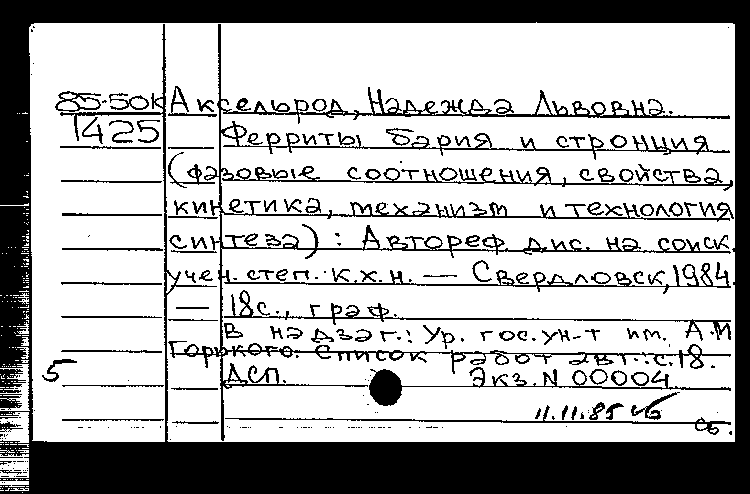 85-50к Аксельрод, Надежда Львовна.
1425 Ферриты бария и стронция
(фазовые соотношения, свойства,
кинетика, механизм и технология
синтеза) : Автореф. дис. на соиск.
учен. степ. к.х.н. — Свердловск, 1984.
— 18с., граф.
В надзаг.: Ур. гос. ун-т им. А.М
Горького. Список работ авт.: с.18.
5 ДСП. Экз. N 00004
11.11.85
сб.